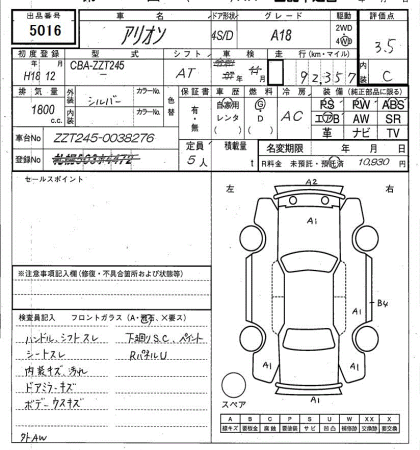 出品番号
5016
車名
アリオン
ドア形状
4S/D
グレード
A18
駆動
2WD
4WD
評価点
3.5
内装
C
初度登録
H18 12
型式
CBA-ZZT245
シフト
AT
車検
走行(km・マイル)
92,357
排気量
1800
c.c.
外装
シルバー
カラーNo.
内装
カラーNo.
色替
保証書
有・無
車歴
自家用
レンタ
( )
燃料
G
D
( )
冷房
AC
装備(純正部品に限る)
PS PW ABS
エアB AW SR
革 ナビ TV
車台No
ZZT245-0038276
定員
5人
積載量
t
名変期限
年 月 日
登録No
札幌503す4472
R料金 未預託・預託済 10,930 円
セールスポイント
左
右
A2
A1
A1
B4
A1
A1
A1
※注意事項記入欄(修復・不具合箇所および状態等)
検査員記入
フロントガラス(A・飛石・X要ス)
ハンドル、シフトスレ
下廻りS.C、ペイント
シートスレ
RパネルU
内装キズ、汚れ
ドアミラーキズ
ボデーウスキズ
スペア
社外AW
A B C P S U W X XX
線キズ 要板金 腐蝕 要塗装 サビ 凹凸 補修跡 要交換